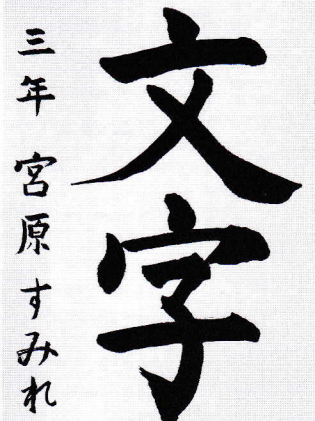 文字
三年 宮原すみれ